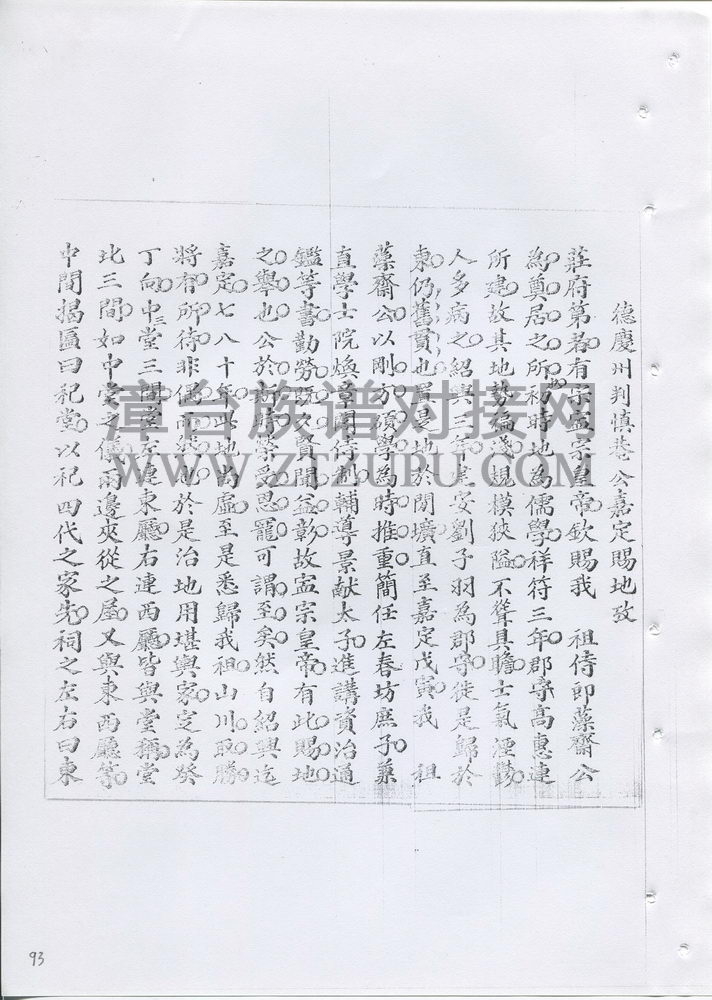 德慶州判慎菴公嘉定賜地攷
莊府第者有宋寧宗皇帝欽賜我 祖侍郎藻齋公
為奠居之所初時地為儒學祥符三年郡守高惠連
所建故其地勢偏淺規模狹隘不聳具瞻士氣湮鬱
人多病之紹興三年建安劉子羽為郡守徙是歸於
東仍舊貫也置是地於閒壙直至嘉定戊寅我 祖
藻齋公以剛方碩學為時推重簡任左春坊庶子兼
直學士院煥章閣待制輔導景献太子進講資治通
鑑等書勤勞既久賢聞益彰故寧宗皇帝有此賜地
之舉也公於斯時榮受恩寵可謂至矣然自紹興迄
嘉定七八十年此地尚虛至是悉歸我祖山川取勝
將有所待非偶而然也於是治地用堪輿家定為癸
丁向中三堂三間堂左連東廳右連西廳皆與堂稱堂
北三間如中堂之儀兩邊夾從之屋又與東西廳等
中間揭匾曰祀堂以祀四代之家先祠之左右曰東
漳台族谱对接网
WWW.ZTZUPU.COM
93